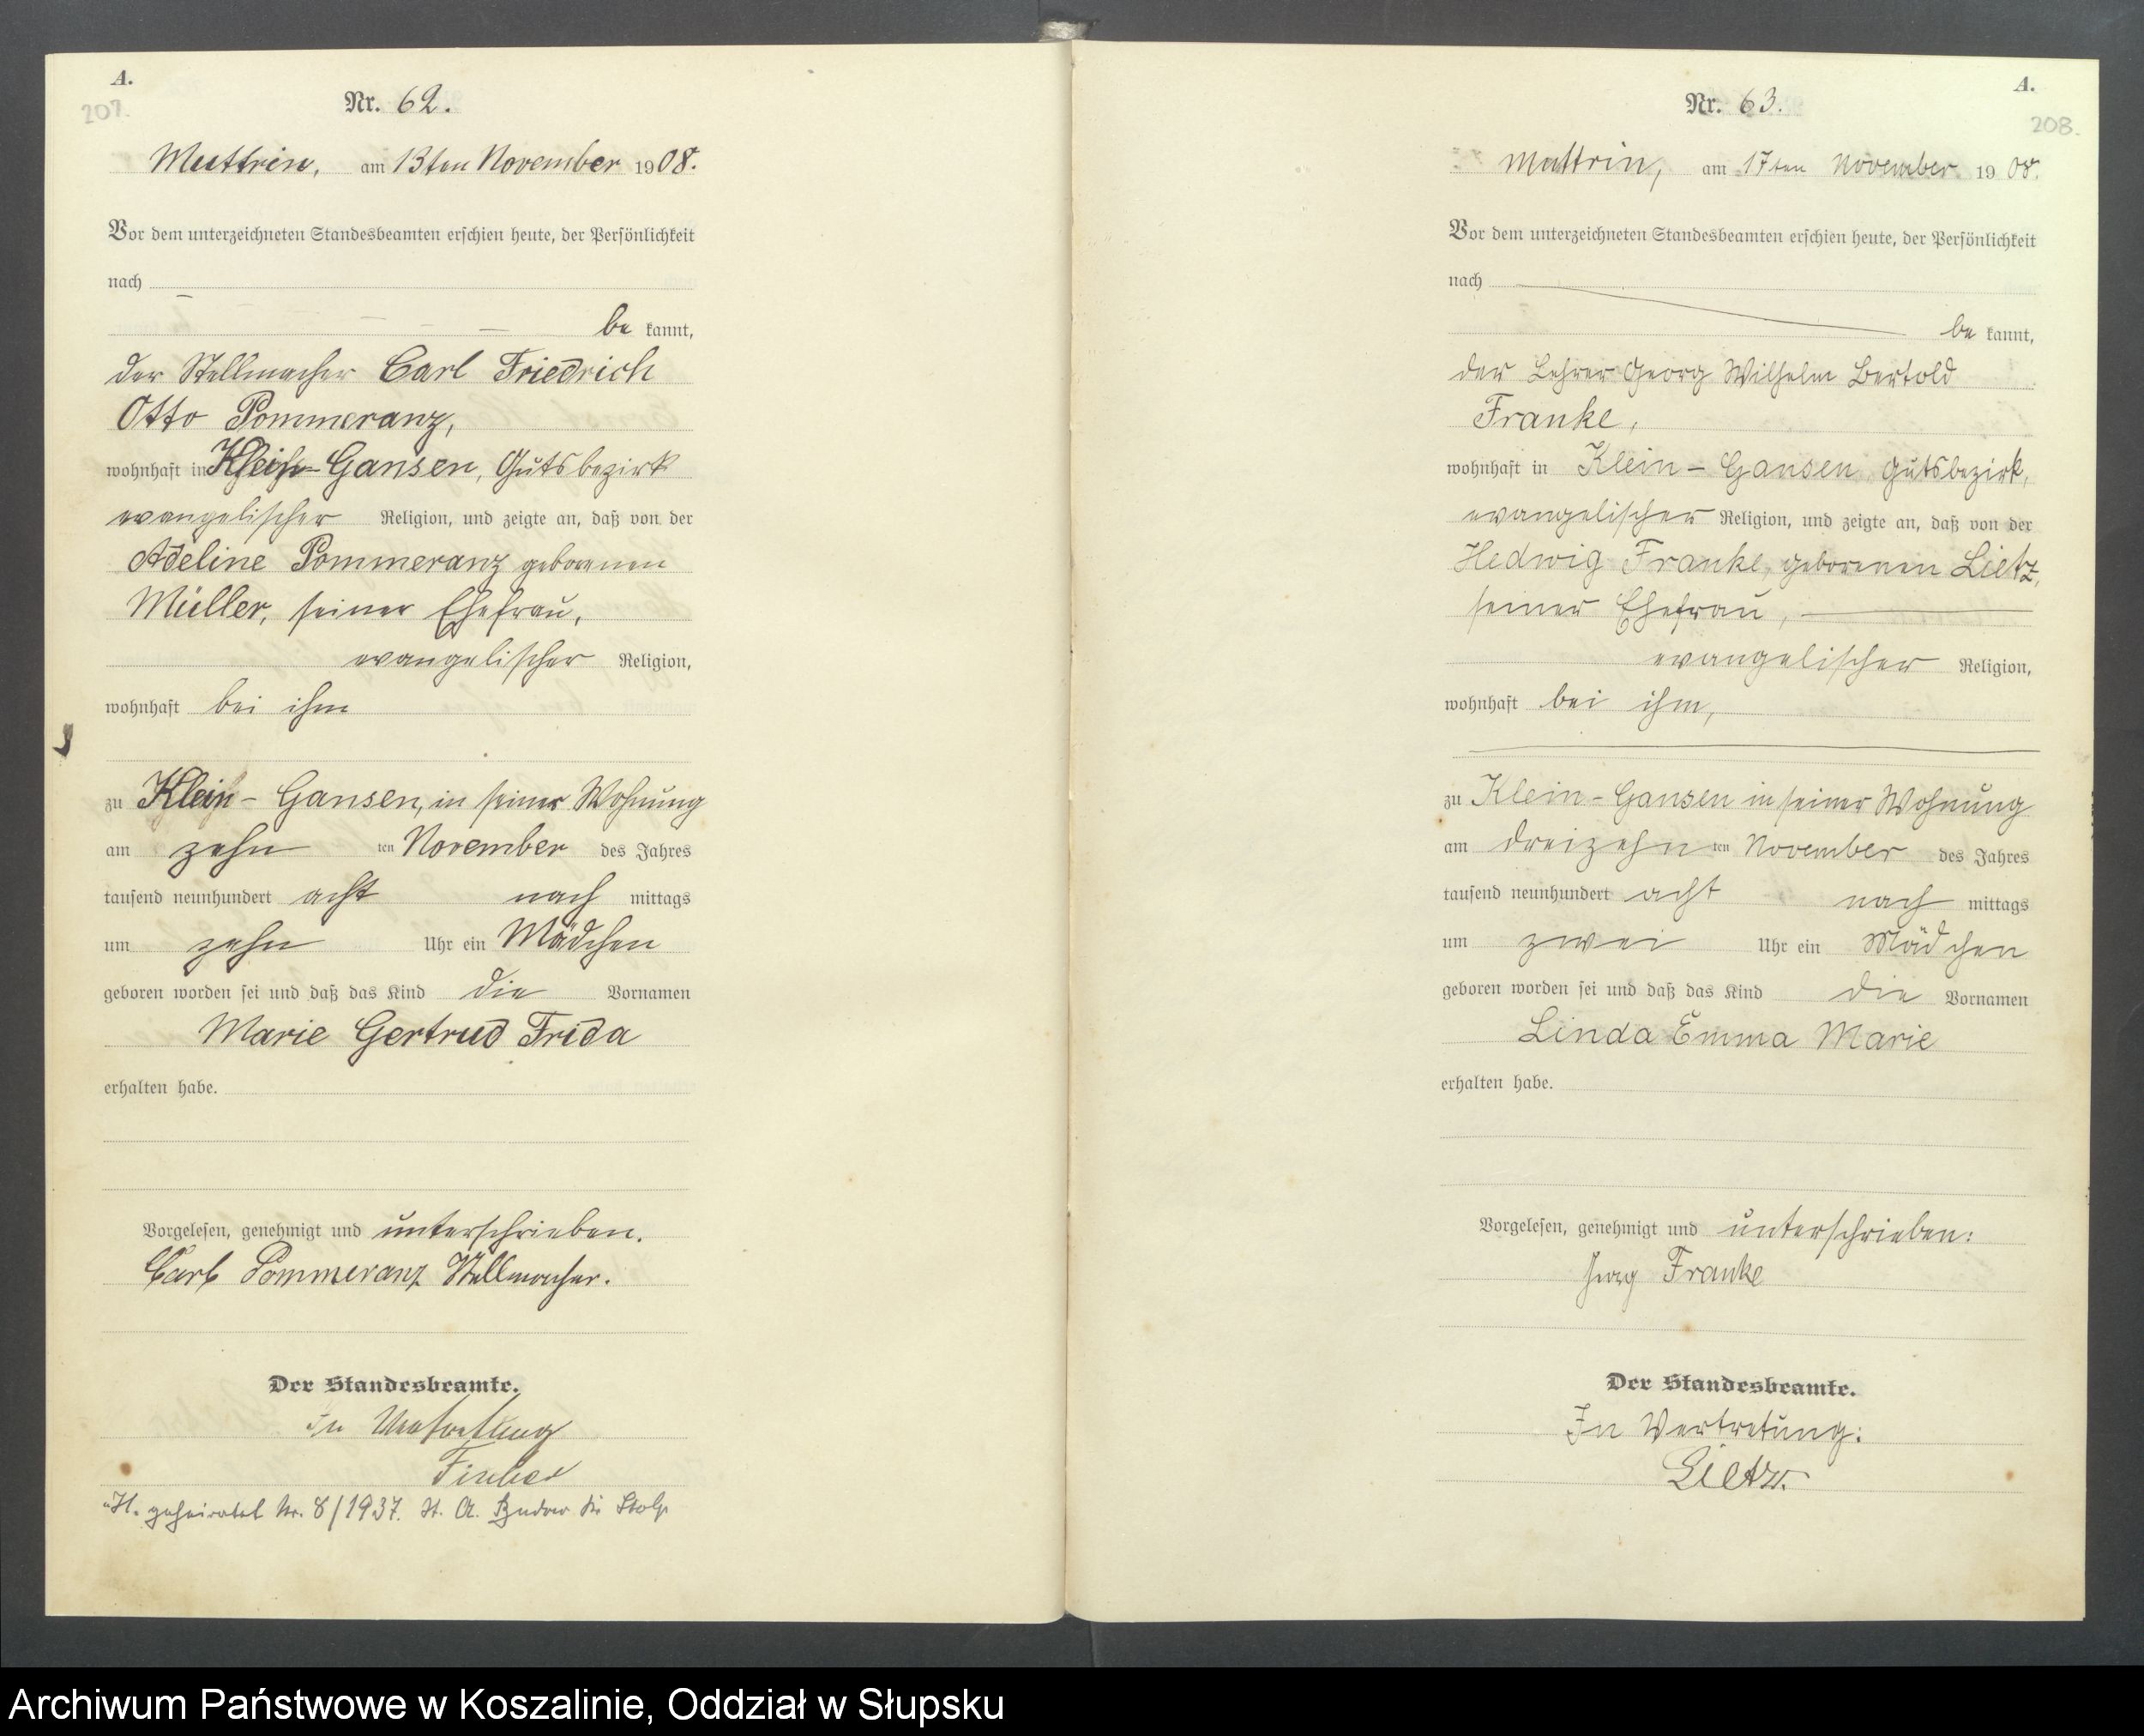 A.
207.
Nr. 62.
Muttrin, am 13ten November 1908.
Vor dem unterzeichneten Standesbeamten erschien heute, der Persönlichkeit
nach
be kannt,
der Stellmacher Carl Friedrich
Otto Pommeranz,
wohnhaft in Klein-Gansen, Gutsbezirk
evangelischer Religion, und zeigte an, daß von der
Adeline Pommeranz geborenen
Müller, seiner Ehefrau,
evangelischer Religion,
wohnhaft bei ihm
zu Klein-Gansen, in seiner Wohnung
am zehn ten November des Jahres
tausend neunhundert acht nach mittags
um zehn Uhr ein Mädchen
geboren worden sei und daß das Kind die Vornamen
Marie Gertrud Frida
erhalten habe.
Vorgelesen, genehmigt und unterschrieben.
Carl Pommeranz Stellmacher.
Der Standesbeamte.
In Vertretung
H. geheiratet Nr. 8/1937. St. A. Stolp
A.
208.
Nr. 63.
Muttrin, am 17ten November 1908.
Vor dem unterzeichneten Standesbeamten erschien heute, der Persönlichkeit
nach
be kannt,
der Lehrer Georg Wilhelm Bertold
Franke,
wohnhaft in Klein-Gansen Gutsbezirk,
evangelischer Religion, und zeigte an, daß von der
Hedwig Franke, geborenen Lietz,
seiner Ehefrau,
evangelischer Religion,
wohnhaft bei ihm,
zu Klein-Gansen in seiner Wohnung
am dreizehn ten November des Jahres
tausend neunhundert acht nach mittags
um zwei Uhr ein Mädchen
geboren worden sei und daß das Kind die Vornamen
Linda Emma Marie
erhalten habe.
Vorgelesen, genehmigt und unterschrieben:
Georg Franke
Der Standesbeamte.
In Vertretung:
Lietz.
Archiwum Państwowe w Koszalinie, Oddział w Słupsku